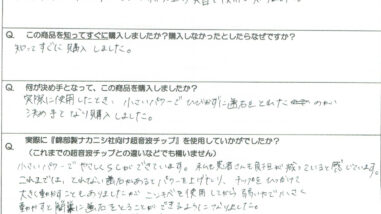 Q. この商品を知ってすぐに購入しましたか?購入しなかったとしたらなぜですか?
知ってすぐに購入しました。
Q. 何が決め手となって、この商品を購入しましたか?
実際に使用したとき 小さいパワーで ひびかずに歯石をとれた のが
決め手となり購入しました。
Q. 実際に『錦部製ナカニシ社向け超音波チップ』を使用していかがでしたか?
(これまでの超音波チップとの違いなどでも構いません)
小さいパワーで やさしくSCができています。 患者さんも 減っていると感じています。
これまでは、とれない歯石があるとパワーを上げたり、チップを
大きく動かすこともありましたが 使用してから 小さく
動かすと簡単に歯石をとることが できるようになりました。